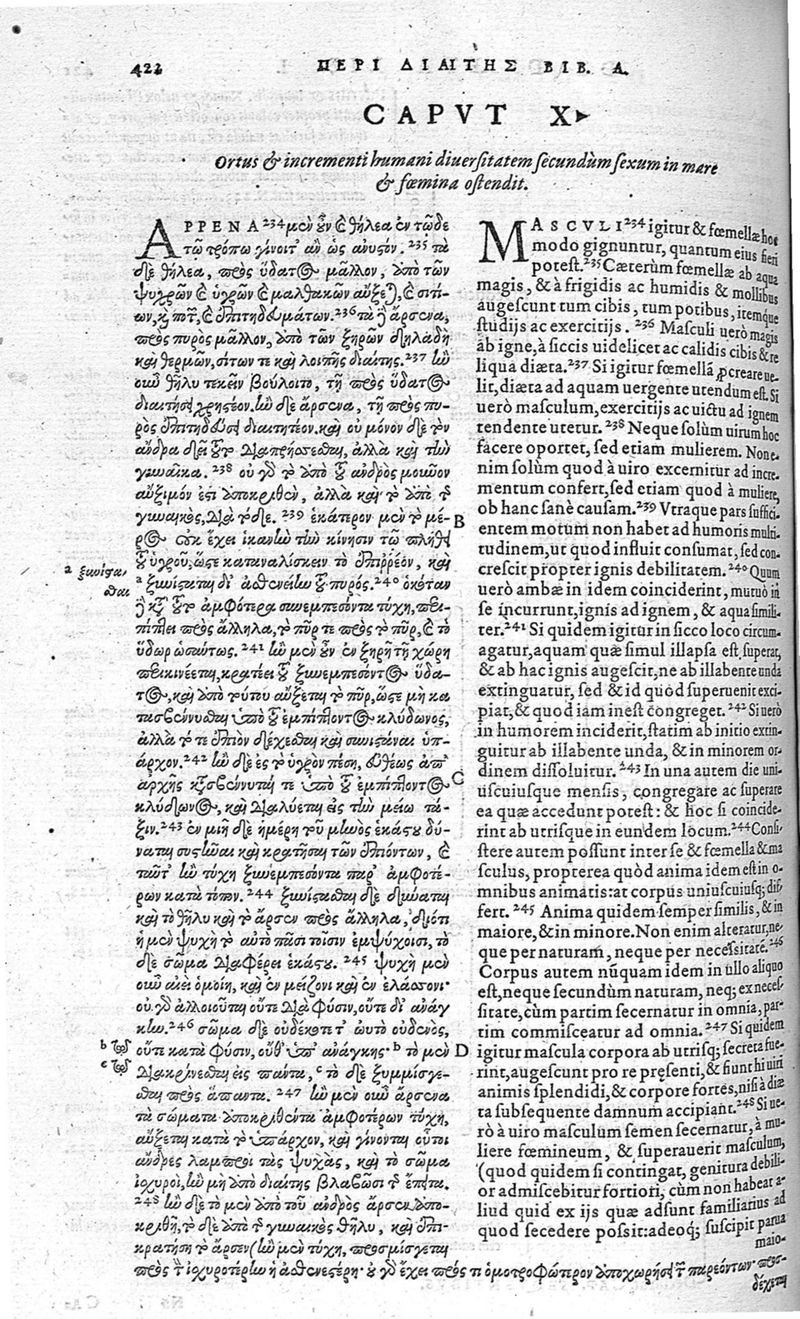 422 ΠΕΡΙ ΔΙΑΙΤΗΣ ΒΙΒ. Α.
CAPVT X
Ortus & incrementi humani diuersitatem secundùm sexum in mare
& fœmina ostendit.
ΑΡΡΕΝΑ 234 μὲν οὖν καὶ θήλεα ἐν τῷδε
τῷ τρόπῳ γίνοιτ' ἂν ὡς ἀνυστόν. 235 τὰ
δὲ θήλεα, πρὸς ὕδατος μᾶλλον, ἀπὸ τῶν
ψυχρῶν καὶ ὑγρῶν καὶ μαλθακῶν αὔξεται, καὶ σιτί-
ων, καὶ ποτῶν, καὶ ἐπιτηδευμάτων. 236 τὰ δὲ ἄρσενα,
πρὸς πυρὸς μᾶλλον, ἀπὸ τῶν ξηρῶν δηλαδὴ
καὶ θερμῶν, σίτων τε καὶ λοιπῆς διαίτης. 237 ἢν
οὖν θῆλυ τεκεῖν βούλοιτο, τῇ πρὸς ὕδατος
διαιτήσει χρηστέον. ἢν δὲ ἄρσενα, τῇ πρὸς πυ-
ρὸς ἐπιτηδεύσει διαιτητέον. καὶ οὐ μόνον δὲ τὸν
ἄνδρα δεῖ τοῦτο διαπρήσσεσθαι, ἀλλὰ καὶ τὴν
γυναῖκα. 238 οὐ γὰρ τὸ ἀπὸ τοῦ ἀνδρὸς μοῦνον
αὔξιμόν ἐστι ἀποκριθὲν, ἀλλὰ καὶ τὸ ἀπὸ τῆς
γυναικὸς, διὰ τόδε. 239 ἑκάτερον μὲν τὸ μέ- B
ρος οὐκ ἔχει ἱκανὴν τὴν κίνησιν τῷ πλήθει
τοῦ ὑγροῦ, ὥστε καταναλίσκειν τὸ ἐπιρρέον, καὶ
a ξυνίστα-
σθαι
a ξυνίσταται δι' ἀσθενείην τοῦ πυρός. 240 ὁκόταν
δὲ κατὰ τοῦτο ἀμφότερα συνεμπεσόντα τύχῃ, περι-
πίπτει πρὸς ἄλληλα, τὸ πῦρ τε πρὸς τὸ πῦρ, καὶ τὸ
ὕδωρ ὡσαύτως. 241 ἢν μὲν οὖν ἐν ξηρῇ τῇ χώρῃ
περικινέηται, κρατέει τοῦ ξυνεμπεσόντος ὕδα-
τος, καὶ ἀπὸ τούτου αὔξεται τὸ πῦρ, ὥστε μὴ κα
τασβέννυσθαι ὑπὸ τοῦ ἐμπίπτοντος κλύδωνος,
ἀλλὰ τό τε ἐπιὸν δέχεσθαι καὶ συνιστάναι ὑπ-
άρχον. 242 ἢν δὲ ἐς τὸ ὑγρὸν πέσῃ, εὐθέως ἀπ'
ἀρχῆς κατασβέννυταί τε ὑπὸ τοῦ ἐμπίπτοντος C
κλύδωνος, καὶ διαλύεται εἰς τὴν μείω τά-
ξιν. 243 ἐν μιῇ δὲ ἡμέρῃ τοῦ μηνὸς ἑκάστου δύ-
ναται συστῆναι καὶ κρατῆσαι τῶν ἐπιόντων, καὶ
ταῦτ' ἢν τύχῃ ξυνεμπεσόντα παρ' ἀμφοτέ-
ρων κατὰ τόπον. 244 ξυνίστασθαι δὲ δύναται
καὶ τὸ θῆλυ καὶ τὸ ἄρσεν πρὸς ἄλληλα, διότι
ἡ μὲν ψυχὴ τὸ αὐτὸ πᾶσι τοῖσιν ἐμψύχοισι, τὸ
δὲ σῶμα διαφέρει ἑκάστου. 245 ψυχὴ μὲν
οὖν αἰεὶ ὁμοίη, καὶ ἐν μείζονι καὶ ἐν ἐλάσσονι·
οὐ γὰρ ἀλλοιοῦται οὔτε διὰ φύσιν, οὔτε δι' ἀνάγ
κην. 246 σῶμα δὲ οὐδέκοτε τ' ὠυτὸ οὐδενὸς,
b τῷ
οὔτε κατὰ φύσιν, οὔθ' ὑπ' ἀνάγκης· b τὸ μὲν D
c τῷ
διακρίνεσθαι εἰς πάντα, c τὸ δὲ ξυμμίσγε-
σθαι πρὸς ἅπαντα. 247 ἢν μὲν οὖν ἄρσενα
τὰ σώματα ἀποκριθέντα ἀμφοτέρων τύχῃ,
αὔξεται κατὰ τὸ ὑπάρχον, καὶ γίνονται οὗτοι
ἄνδρες λαμπροὶ τὰς ψυχὰς, καὶ τὸ σῶμα
ἰσχυροὶ, ἢν μὴ ὑπὸ διαίτης βλαβῶσι τ' ἔπειτα.
248 ἢν δὲ τὸ μὲν ἀπὸ τοῦ ἀνδρὸς ἄρσεν ἀπο-
κριθῇ, τὸ δὲ ἀπὸ τῆς γυναικὸς θῆλυ, καὶ ἐπι-
κρατήσῃ τὸ ἄρσεν (ἢν μὲν τύχῃ, προσμίσγεται
πρὸς τὴν ἰσχυροτέρην ἡ ἀσθενεστέρη· οὐ γὰρ ἔχει πρός τι ὁμοτροφώτερον ἀποχωρῆσαι τῶν παρεόντων· προσ-
δέχεται
MASCVLI 234 igitur & fœmellæ hoc
modo gignuntur, quantum eius fieri
potest. 235 Cæterùm fœmellæ ab aqua
magis, & à frigidis ac humidis & mollibus
augescunt tum cibis, tum potibus, itemque
studijs ac exercitijs. 236 Masculi uerò magis
ab igne, à siccis uidelicet ac calidis cibis & re
liqua diæta. 237 Si igitur fœmellã ꝓcreare ue-
lit, diæta ad aquam uergente utendum est. Si
uerò masculum, exercitijs ac uictu ad ignem
tendente utetur. 238 Neque solùm uirum hoc
facere oportet, sed etiam mulierem. Non e-
nim solùm quod à uiro excernitur ad incre-
mentum confert, sed etiam quod à muliere,
ob hanc sanè causam. 239 Vtraque pars suffici-
entem motum non habet ad humoris multi-
tudinem, ut quod influit consumat, sed con-
crescit propter ignis debilitatem. 240 Quum
uerò ambæ in idem coinciderint, mutuò in
se incurrunt, ignis ad ignem, & aqua simili-
ter. 241 Si quidem igitur in sicco loco circum-
agatur, aquam quæ simul illapsa est, superat,
& ab hac ignis augescit, ne ab illabente unda
extinguatur, sed & id quòd superuenit exci-
piat, & quod iam inest congreget. 242 Si uerò
in humorem inciderit, statim ab initio extin-
guitur ab illabente unda, & in minorem or-
dinem dissoluitur. 243 In una autem die uni-
uscuiusque mensis, congregare ac superare
ea quæ accedunt potest: & hoc si coincide-
rint ab utrisque in eundem locum. 244 Consi-
stere autem possunt inter se & fœmella & ma
sculus, propterea quòd anima idem est in o-
mnibus animatis: at corpus uniuscuiusq; dif-
fert. 245 Anima quidem semper similis, & in
maiore, & in minore. Non enim alteratur, ne-
que per naturam, neque per necessitatẽ. 246
Corpus autem nũquam idem in ullo aliquo
est, neque secundùm naturam, neq; ex neces-
sitate, cùm partim secernatur in omnia, par-
tim commisceatur ad omnia. 247 Si quidem
igitur mascula corpora ab utrisq; secreta fue-
rint, augescunt pro re præsenti, & fiunt hi uiri
animis splendidi, & corpore fortes, nisi à diæ
ta subsequente damnum accipiant. 248 Si ue-
rò à uiro masculum semen secernatur, à mu-
liere fœmineum, & superauerit masculum,
(quod quidem si contingat, genitura debili-
or admiscebitur fortiori, cùm non habeat a-
liud quid ex ijs quæ adsunt familiarius ad
quod secedere possit: adeoq; suscipit parua
maio-